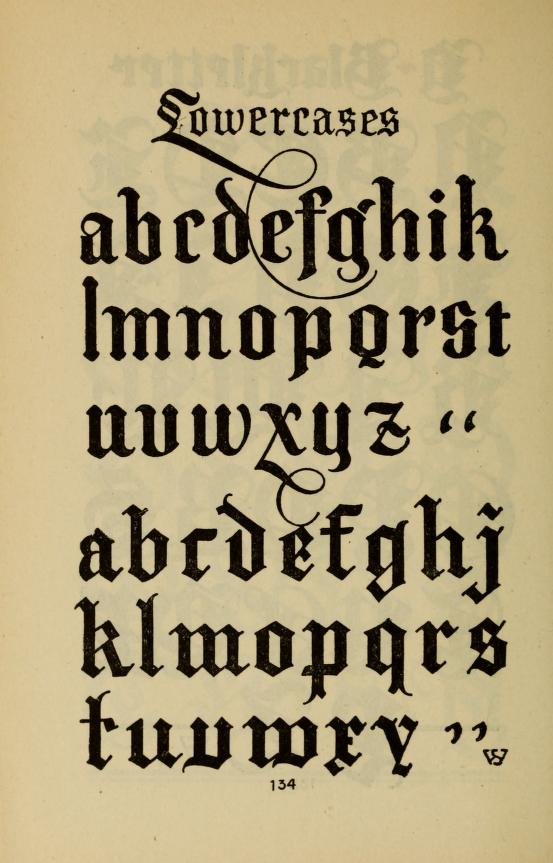 Lowercases
abcdefghik
lmnopqrst
uvwxyz “
abcdefghj
klmopqrs
tuvwxy ”
134